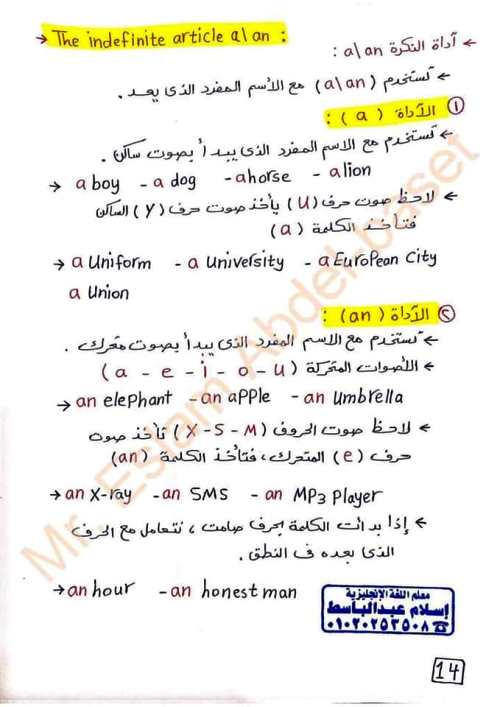 → The indefinite article a\an :
← أداة النكرة a\an :
← تستخدم (a\an) مع الأسم المفرد الذى يعد .
① الأداة (a) :
← تستخدم مع الاسم المفرد الذى يبدأ بصوت ساكن .
→ a boy - a dog - a horse - a lion
← لاحظ صوت حرف (U) يأخذ صوت حرف (Y) الساكن
فتأخذ الكلمة (a)
→ a Uniform - a University - a EuroPean City
a Union
② الأداة (an) :
← تستخدم مع الاسم المفرد الذى يبدأ بصوت متحرك .
← الأصوات المتحركة (a - e - i - o - u)
→ an elePhant - an aPPle - an Umbrella
← لاحظ صوت الحروف (X - S - M) تأخذ صوت
حرف (e) المتحرك ، فتأخذ الكلمة (an)
→ an X-ray - an SMS - an MP3 Player
← إذا بدأت الكلمة بحرف صامت ، نتعامل مع الحرف
الذى بعده فى النطق .
→ an hour - an honest man
معلم اللغة الإنجليزية
إسلام عبدالباسط
٠١٠٢٠٢٥٣٥٠٨ ☎
14
Mr. Eslam Abdel-baset